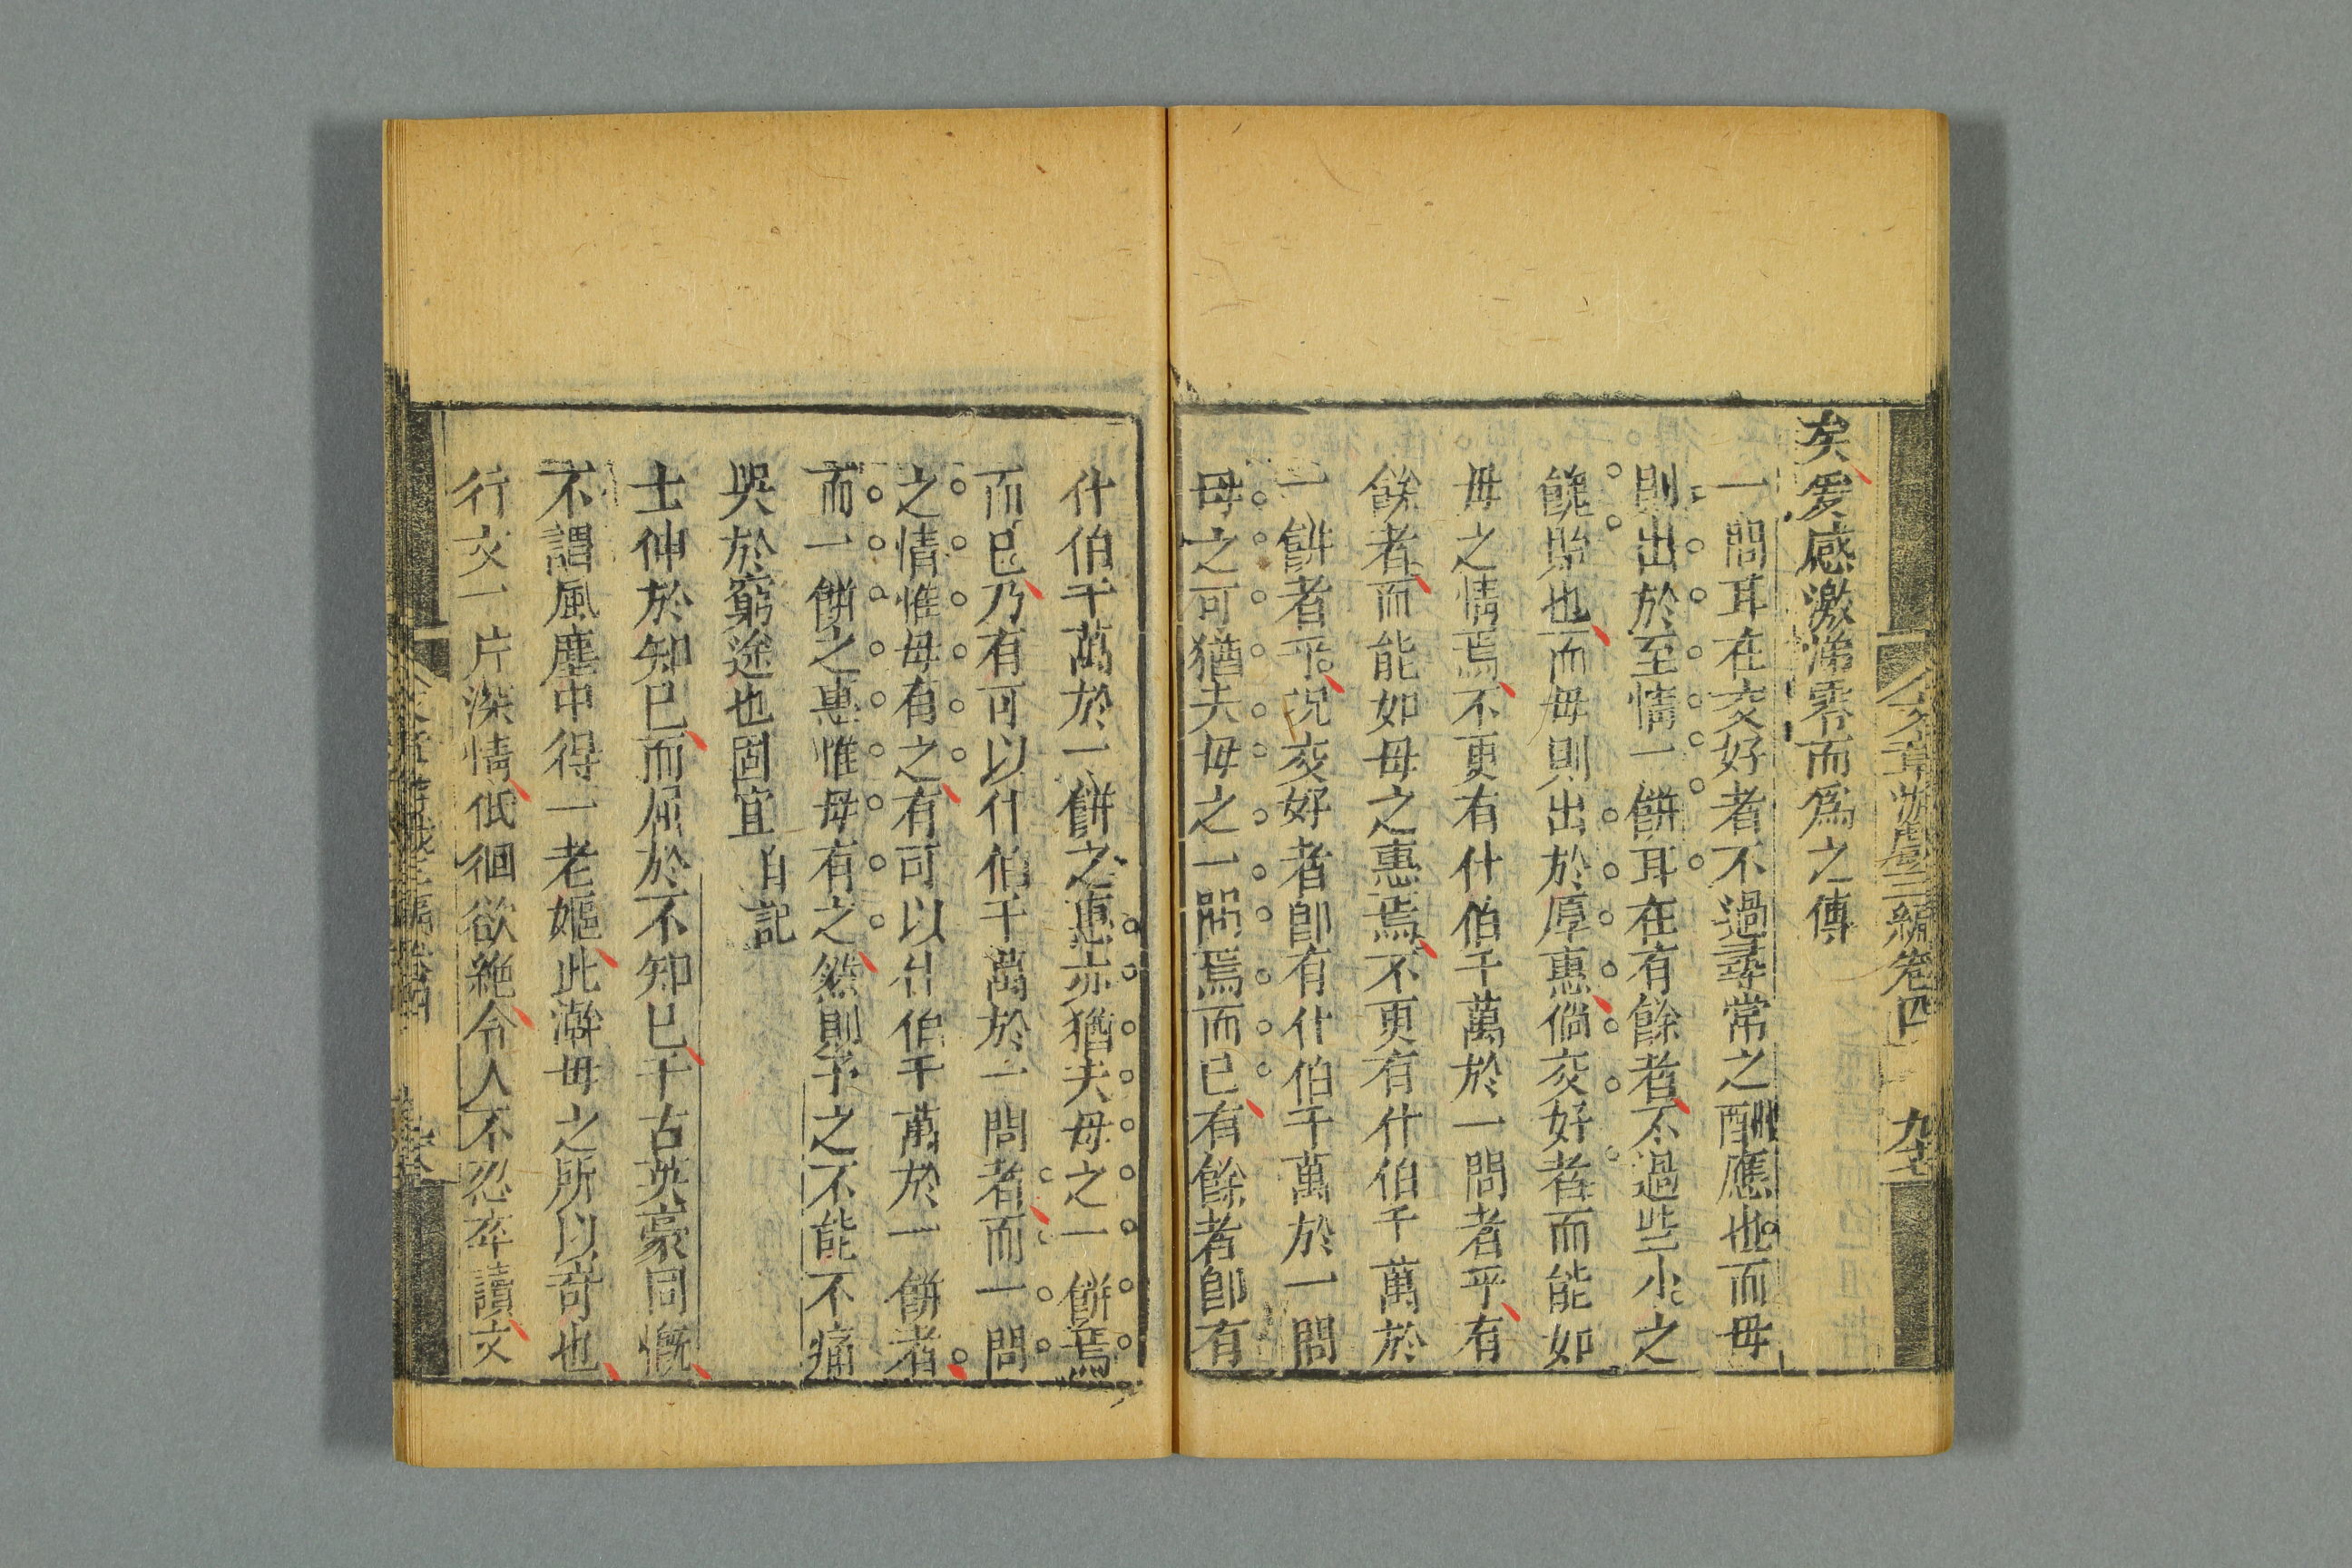 文章游戲三編卷四 九十
矣爰感激涕零而爲之傳
一問耳在交好者不過尋常之酬應也而毋
則出於至情一餠耳在有餘者不過些小之
餽貽也而毋則出於厚惠倘交好者而能如
毋之情焉不更有什伯千萬於一問者乎有
餘者而能如毋之惠焉不更有什伯千萬於
一餠者乎況交好者卽有什伯千萬於一問
毋之可猶夫毋之一問焉而已有餘者卽有
什伯千萬於一餠之惠亦猶夫毋之一餠焉
而已乃有可以什伯千萬於一問者而一問
之情惟毋有之有可以什伯千萬於一餠者
而一餠之惠惟毋有之然則予之不能不痛
哭於窮途也固宜 自記
士伸於知已而屈於不知已千古英豪同慨
不謂風塵中得一老嫗此澣毋之所以奇也
行文一片深情低徊欲絕令人不忍卒讀文
文章游戲三編卷四